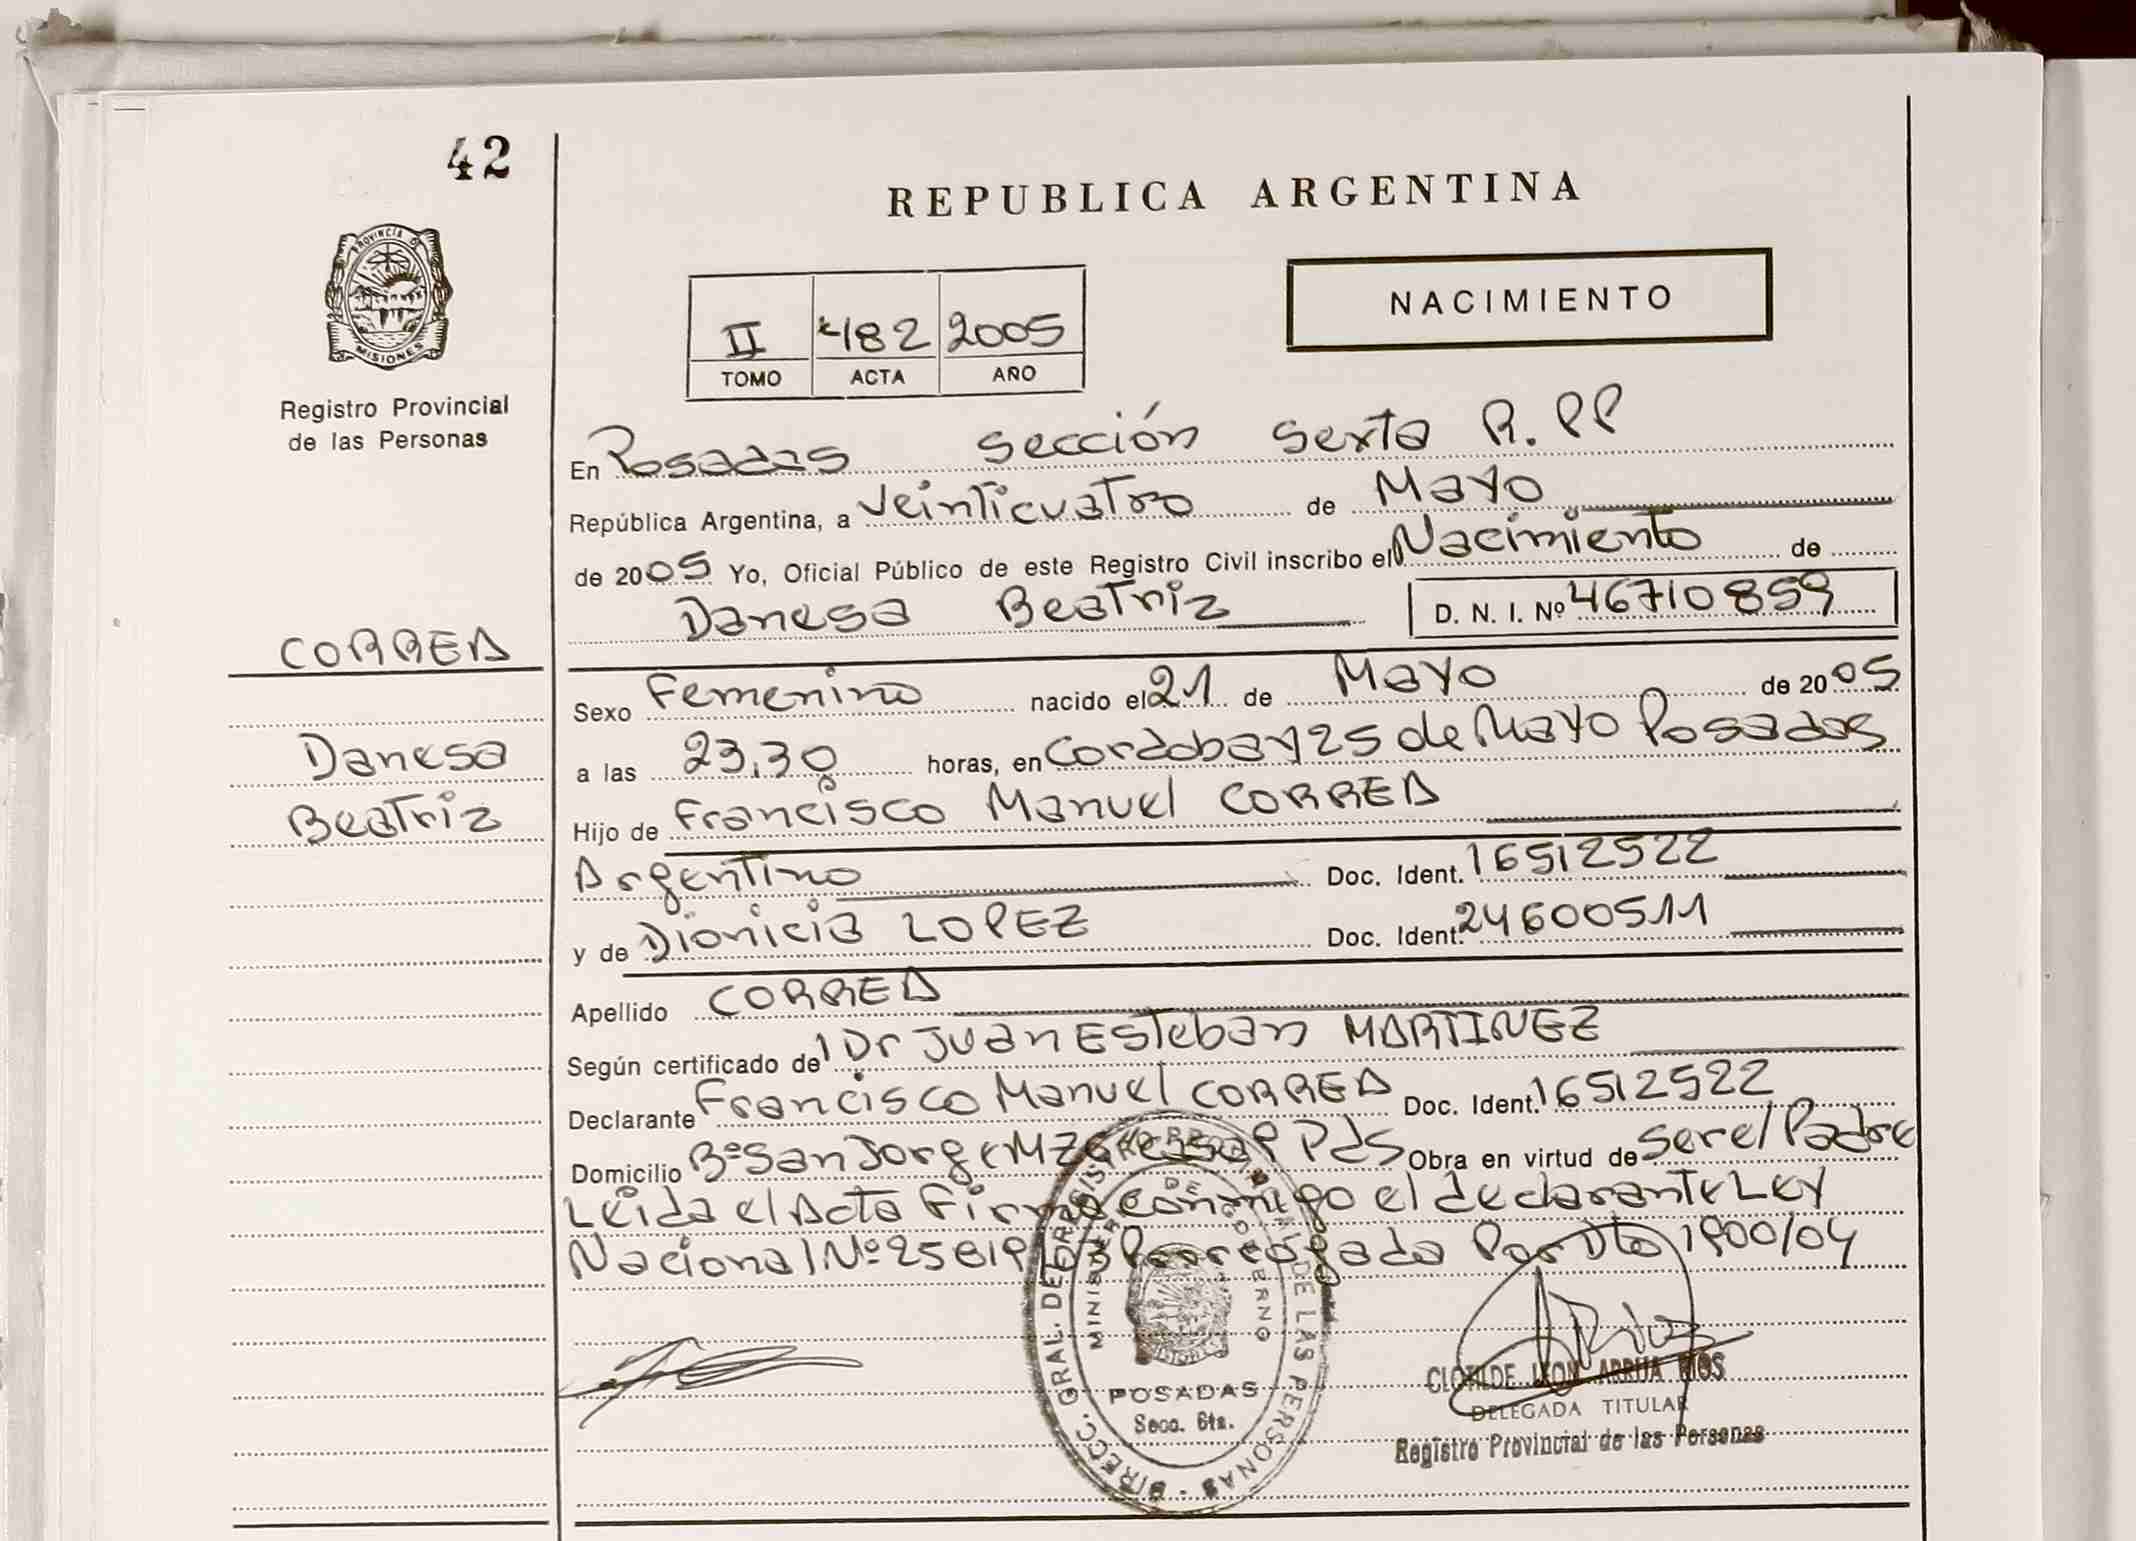 42
REPUBLICA ARGENTINA
PROVINCIA DE
MISIONES
Registro Provincial
de las Personas
II 482 2005
TOMO ACTA AÑO
NACIMIENTO
En Posadas Sección Sexta R.PP
República Argentina, a Veinticuatro de Mayo
de 2005 Yo, Oficial Público de este Registro Civil inscribo el Nacimiento de
Danesa Beatriz D. N. I. Nº 46710859
CORREA
Danesa
Beatriz
Sexo Femenino nacido el 21 de Mayo de 2005
a las 23,30 horas, en Cordoba y 25 de Mayo Posadas
Hijo de Francisco Manuel CORREA
Argentino Doc. Ident. 16512522
y de Dionicia LOPEZ Doc. Ident. 24600511
Apellido CORREA
Según certificado de 1 Dr Juan Esteban MARTINEZ
Declarante Francisco Manuel CORREA Doc. Ident. 16512522
Domicilio Bº San Jorge MZ Pds Obra en virtud de ser el Padre
Leida el Acta Firma conmigo el declarante Ley
Nacional Nº 25819/03 Prorrogada Por Dto 1900/04
DIRECC. GRAL. DE REGISTRO PROVINCIAL DE LAS PERSONAS
MINISTERIO DE GOBIERNO
MISIONES
POSADAS
Secc. 6ta.
CLOTILDE LEON ARRUA RIOS
DELEGADA TITULAR
Registro Provincial de las Personas